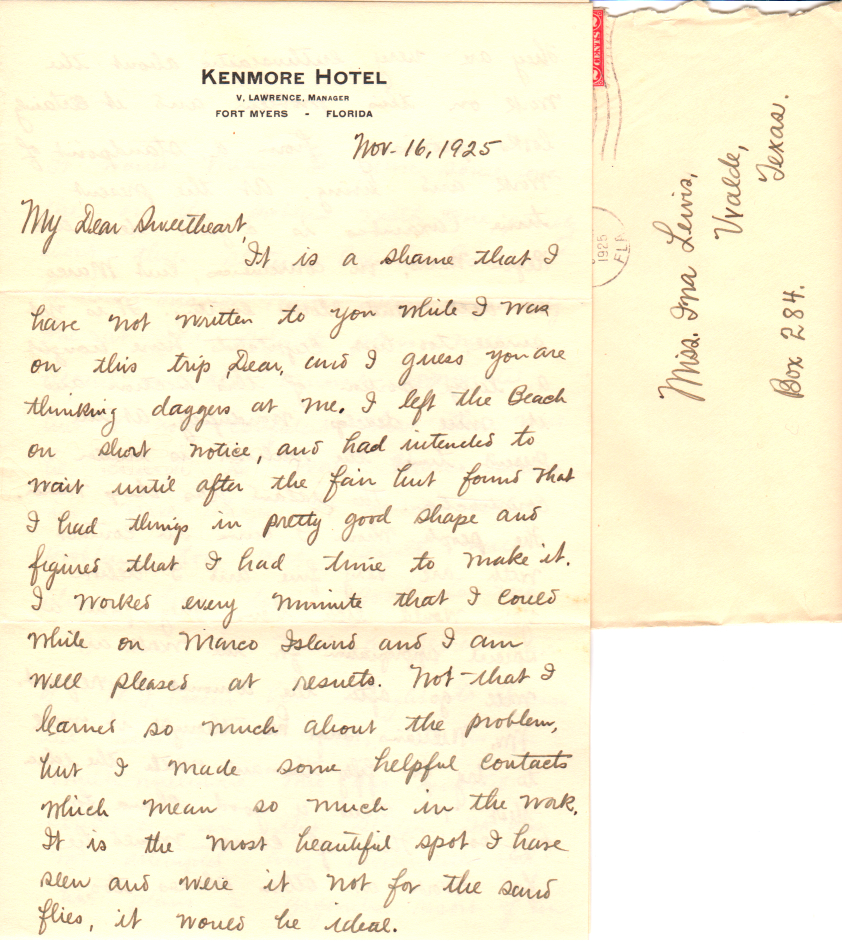 KENMORE HOTEL
V. LAWRENCE, MANAGER
FORT MYERS - FLORIDA
Nov. 16, 1925
My Dear Sweetheart,
It is a shame that I
have not written to you while I was
on this trip, Dear, and I guess you are
thinking daggers at me. I left the Beach
on short notice, and had intended to
wait until after the fair but found that
I had things in pretty good shape and
figured that I had time to make it.
I worked every minute that I could
while on Marco Island and I am
well pleased at results. Not that I
learned so much about the problem,
but I made some helpful contacts
which mean so much in the work.
It is the most beautiful spot I have
seen and were it not for the sand
flies, it would be ideal.
CENTS
1925
FLA
Miss. Ina Lewis,
Uvalde,
Texas.
Box 284.